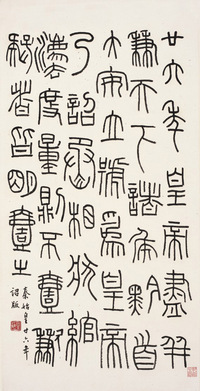 廿六年皇帝盡并
兼天下諸侯黔首
大安立號為皇帝
乃詔丞相狀綰
灋度量則不壹歉
疑者皆明壹之
秦始皇廿六年
詔版